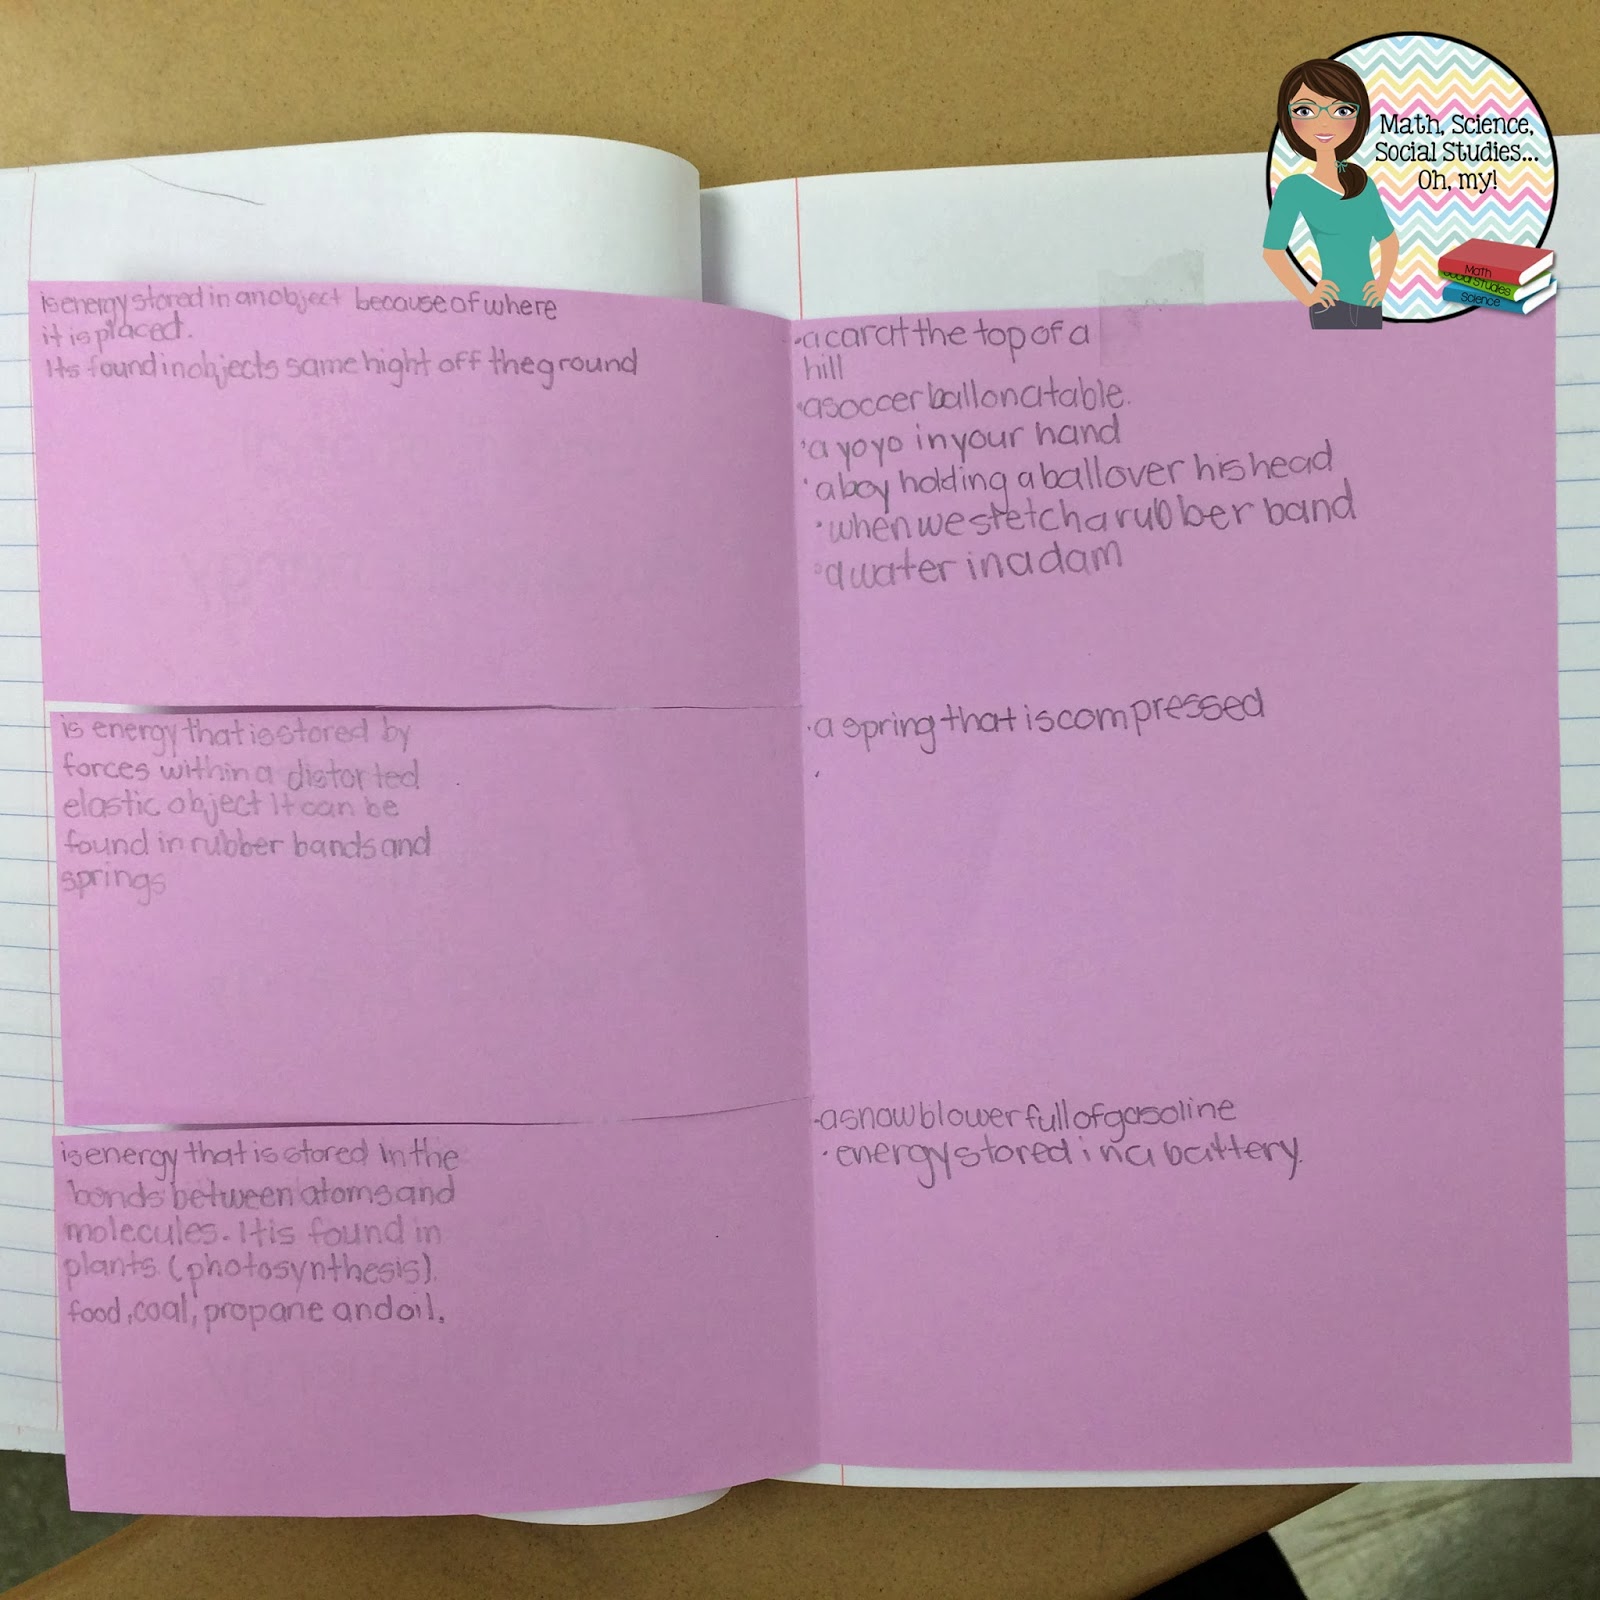 Math, Science,
Social Studies...
Oh, my!
Math
Social Studies
Science
is energy stored in an object because of where
it is placed.
Its found in objects same hight off the ground
is energy that is stored by
forces within a distorted
elastic object it can be
found in rubber bands and
springs
is energy that is stored in the
bonds between atoms and
molecules. It is found in
plants (photosynthesis).
food, coal, propane and oil.
-a car at the top of a
hill
•a soccer ball on a table.
•a yoyo in your hand
•a boy holding a ball over his head
•when we stetch a rubber band
•a water in a dam
•a spring that is compressed
-a snow blower full of gasoline
•energy stored in a battery.